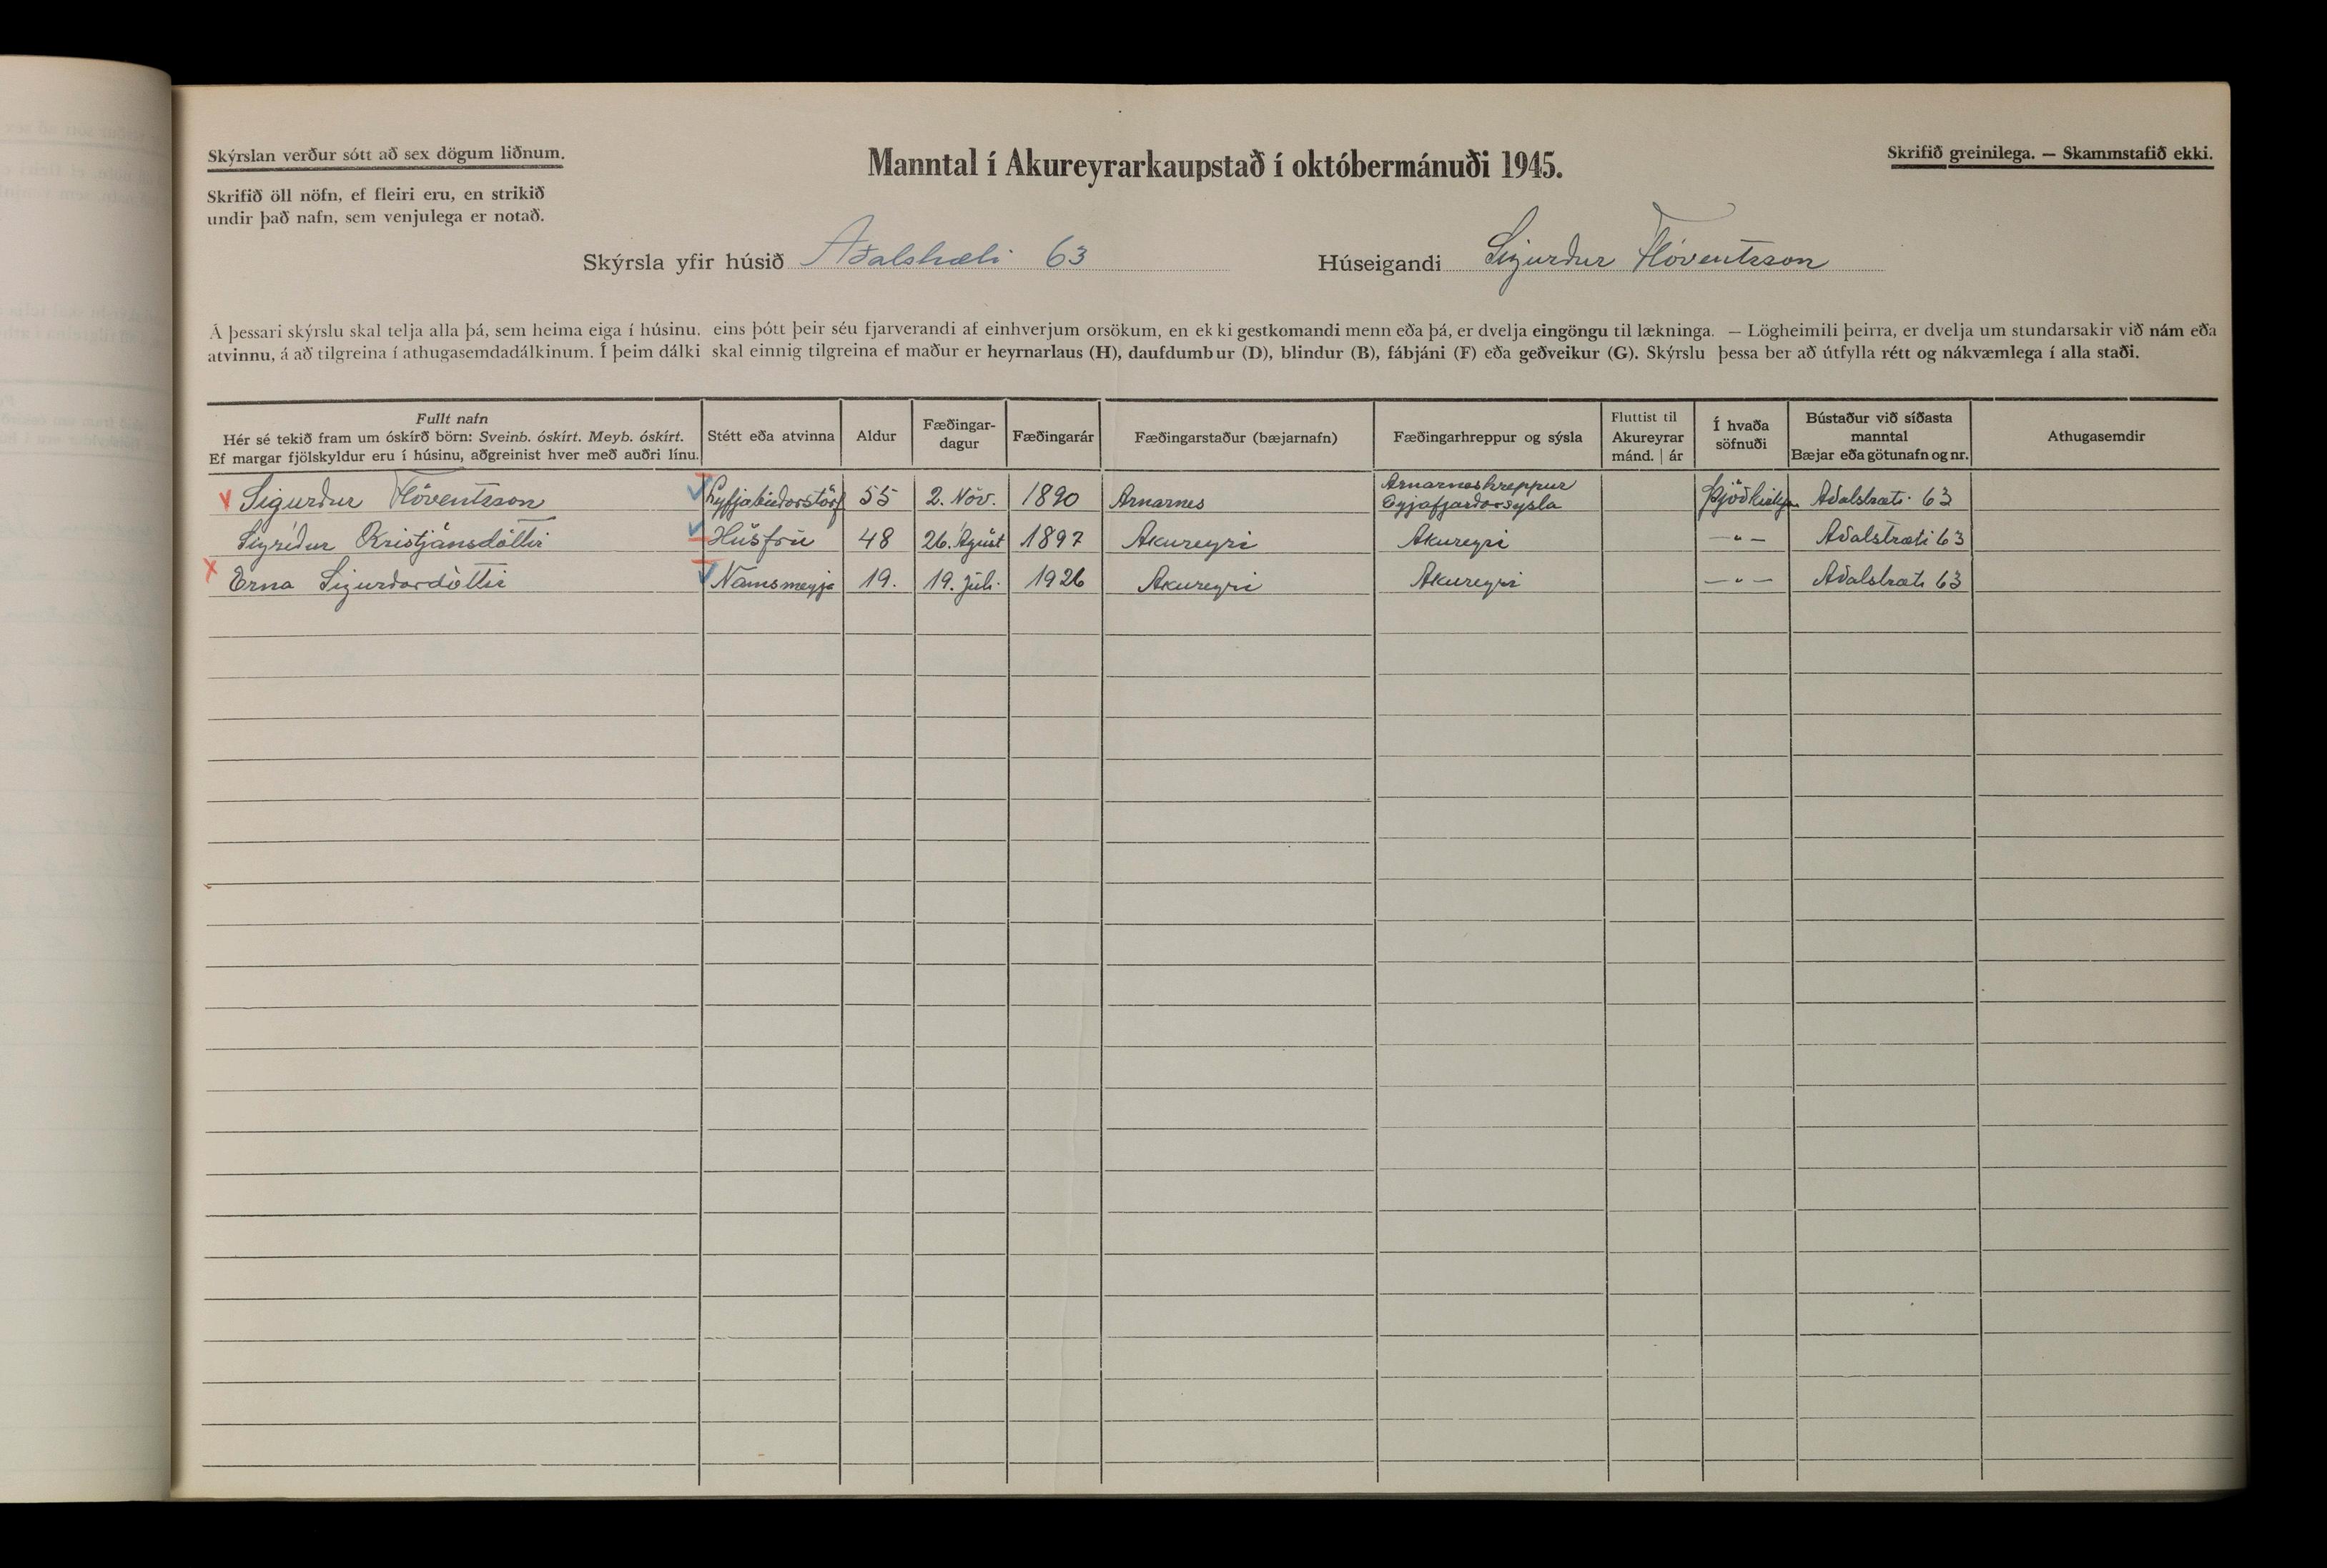 Skýrslan verður sótt að sex dögum liðnum.
Manntal í Akureyrarkaupstað í októbermánuði 1945.
Skrifið greinilega. — Skammstafið ekki.
Skrifið öll nöfn, ef fleiri eru, en strikið
undir það nafn, sem venjulega er notað.
Skýrsla yfir húsið Aðalstræti 63 Húseigandi Sigurður Flóventsson
Á þessari skýrslu skal telja alla þá, sem heima eiga í húsinu. eins þótt þeir séu fjarverandi af einhverjum orsökum, en ekki gestkomandi menn eða þá, er dvelja eingöngu til lækninga. — Lögheimili þeirra, er dvelja um stundarsakir við nám eða
atvinnu, á að tilgreina í athugasemdadálkinum. Í þeim dálki skal einnig tilgreina ef maður er heyrnarlaus (H), daufdumbur (D), blindur (B), fábjáni (F) eða geðveikur (G). Skýrslu þessa ber að útfylla rétt og nákvæmlega í alla staði.
Fullt nafn
Hér sé tekið fram um óskírð börn: Sveinb. óskírt. Meyb. óskírt.
Ef margar fjölskyldur eru í húsinu, aðgreinist hver með auðri línu.
Stétt eða atvinna
Aldur
Fæðingar-
dagur
Fæðingarár
Fæðingarstaður (bæjarnafn)
Fæðingarhreppur og sýsla
Fluttist til
Akureyrar
mánd. | ár
Í hvaða
söfnuði
Bústaður við síðasta
manntal
Bæjar eða götunafn og nr.
Athugasemdir
Sigurður Flóventsson Lyfjabúðarstörf 55 2. Nóv. 1890 Arnarnes Arnarneshreppur
Eyjafjarðarsýsla Þjóðkirkju Aðalstræti 63
Sigríður Kristjánsdóttir Húsfrú 48 26. Ágúst 1897 Akureyri Akureyri —〃— Aðalstræti 63
Erna Sigurðardóttir Námsmeyja 19. 19. Júlí. 1926 Akureyri Akureyri —〃— Aðalstræti 63